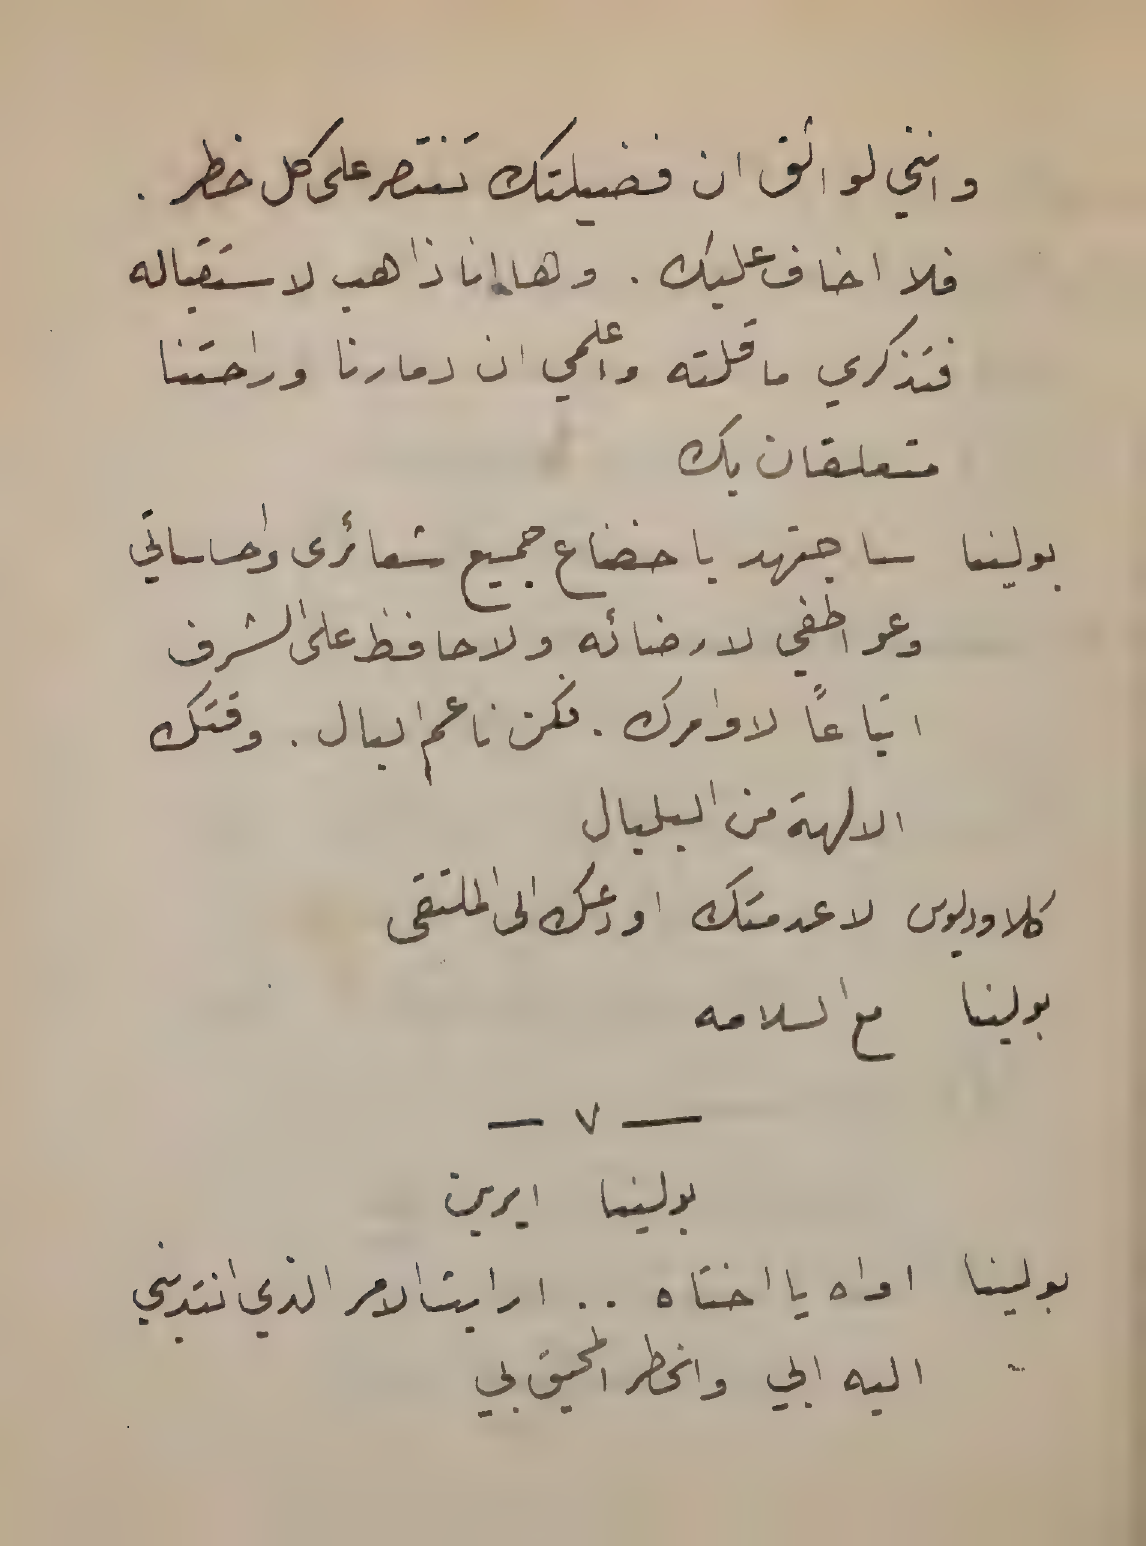 وانني لواثق ان فضيلتك تنتصر على كل خطر .
فلا اخاف عليك . وها انا ذاهب لاستقباله
فتذكري ما قلته واعلمي ان دمارنا وراحتنا
متعلقان بك
بولينا ساجتهد باخضاع جميع شعائرى واحساساتي
وعواطفي لارضائه ولاحافظ على الشرف
اتباعاً لاوامرك . فكن ناعم البال . وقتك
الالهة من البلبال
كلاوديوس لاعدمتك اودعك الى الملتقى
بولينا مع السلامه
— ٧ —
بولينا ايرين
بولينا اواه يا اختاه .. ارايت الامر الذي انتدبني
اليه ابي والخطر المحيق بي